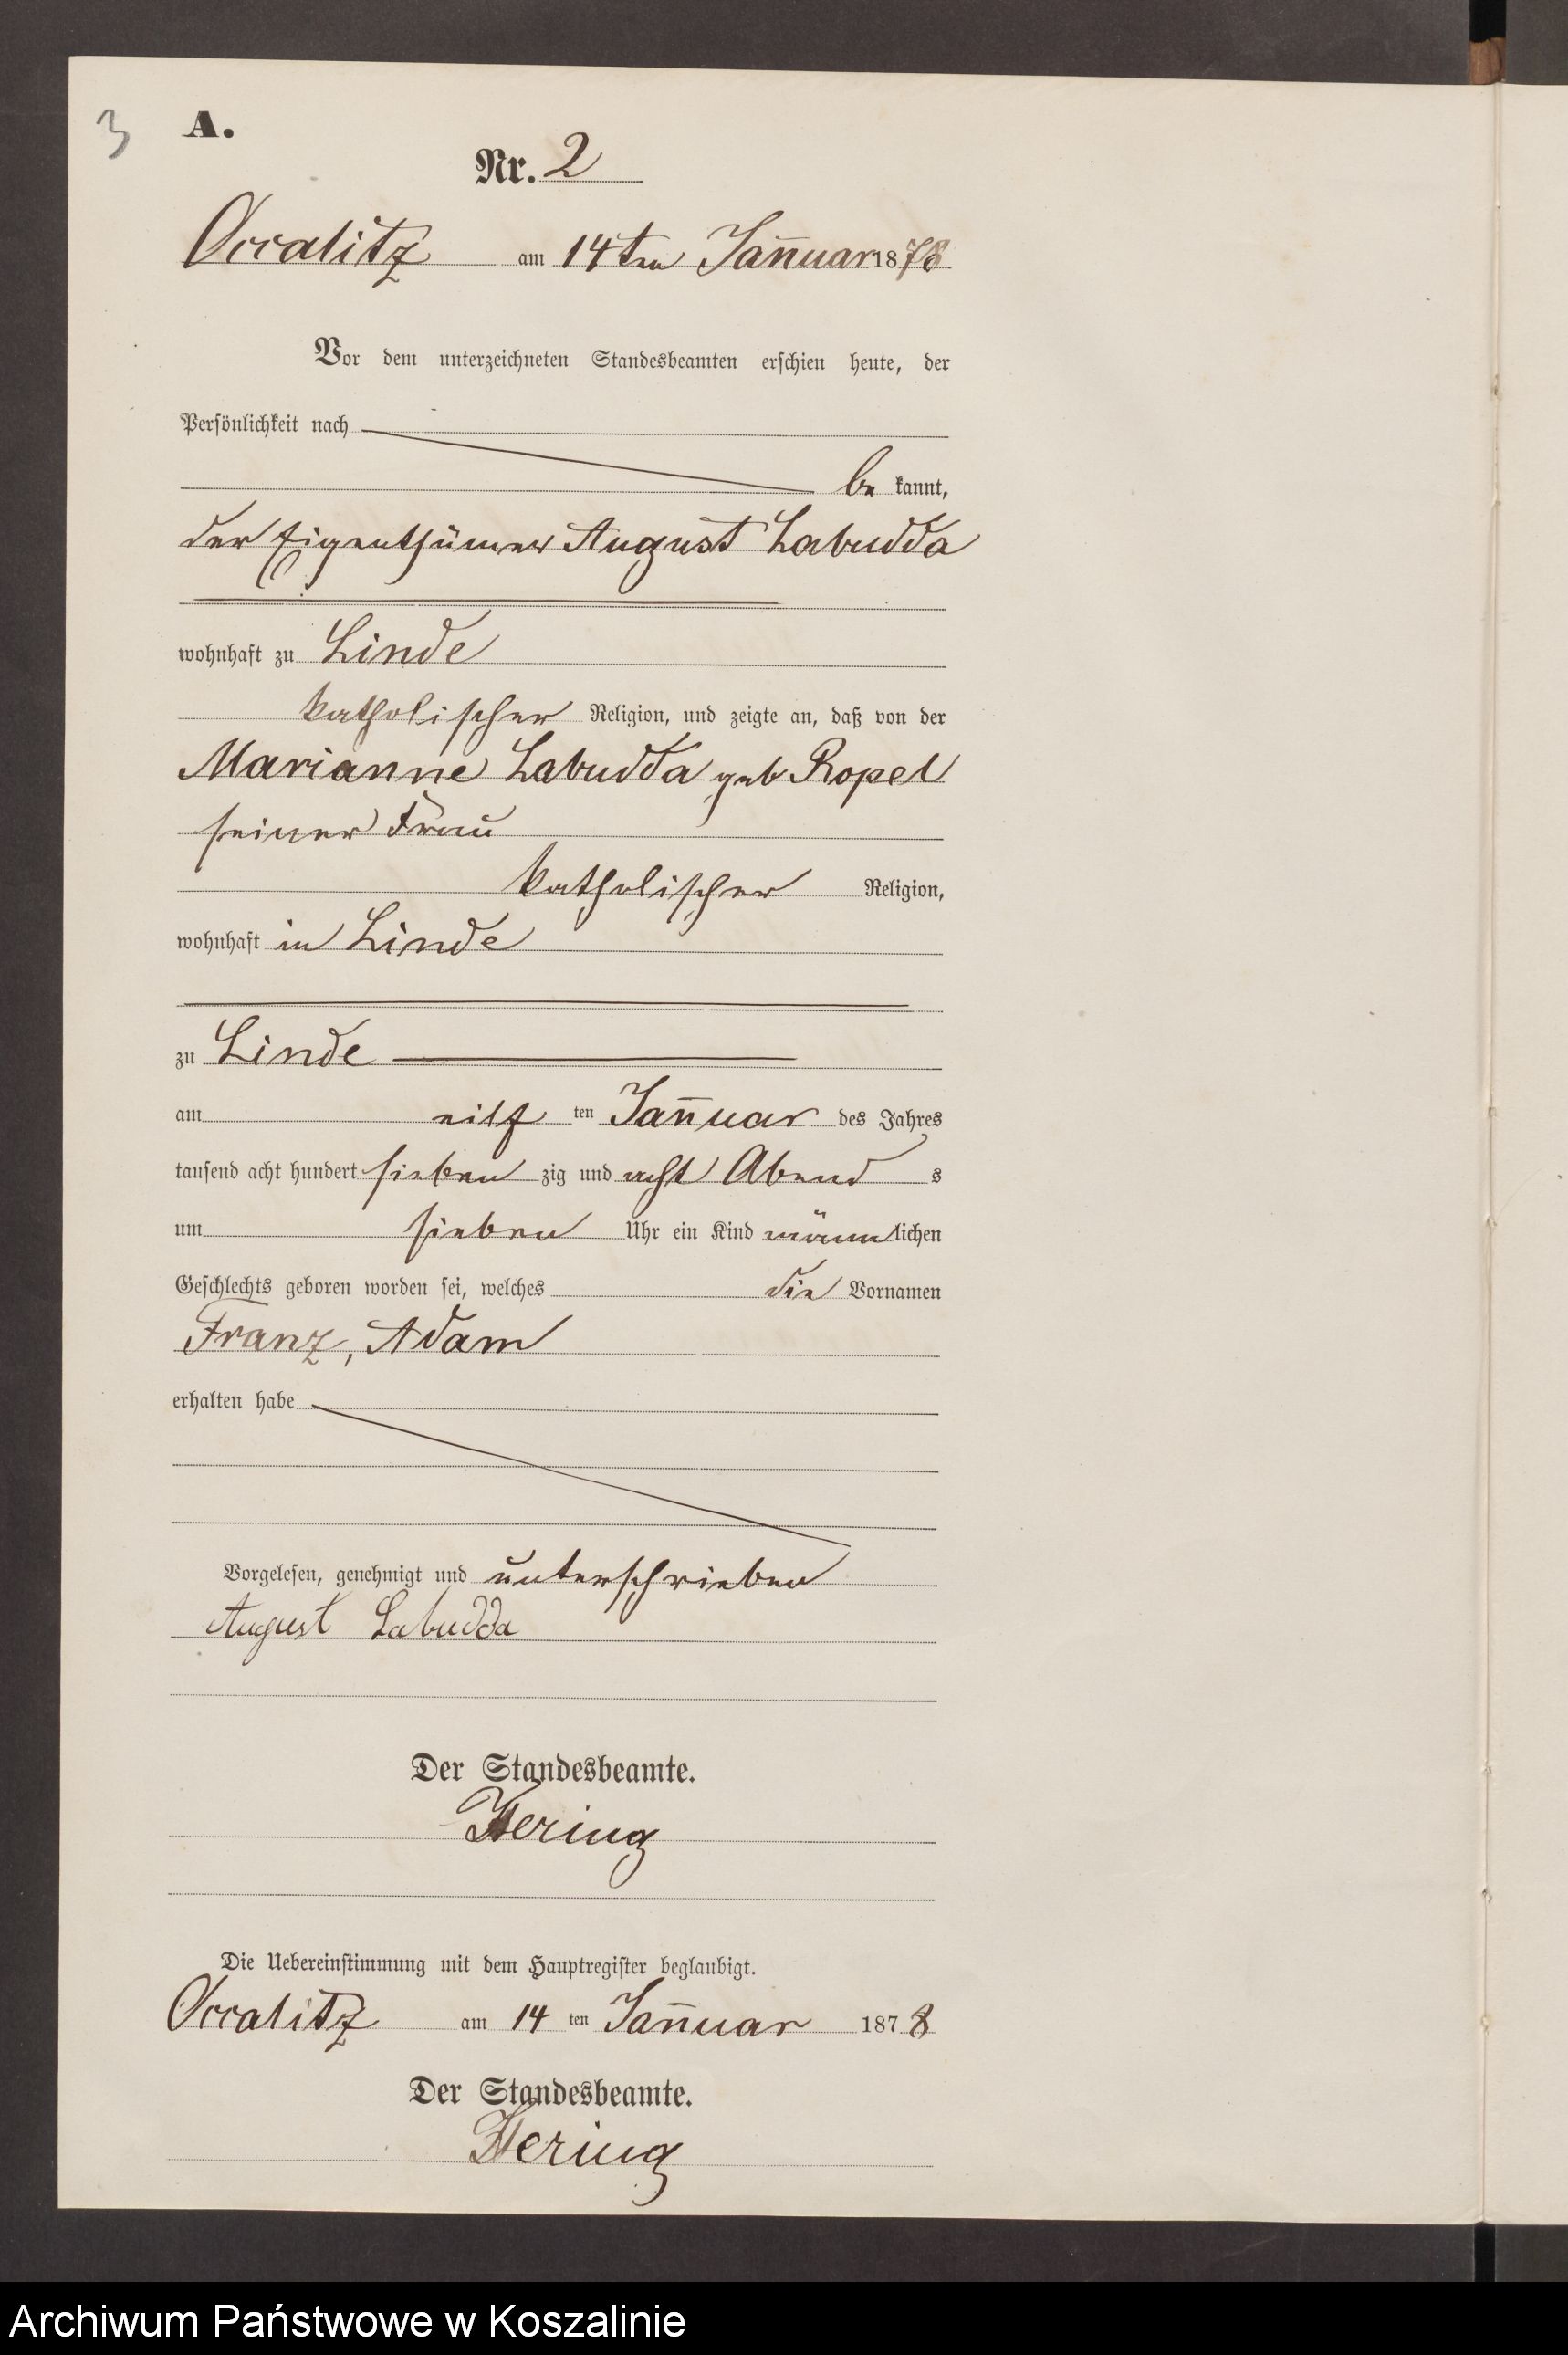 3
A.
Nr. 2
Occalitz am 14ten Jan̄uar 1878
Vor dem unterzeichneten Standesbeamten erschien heute, der
Persönlichkeit nach
be kannt,
der Eigenthümer August Labudda
wohnhaft zu Linde
katholischer Religion, und zeigte an, daß von der
Marianne Labudda geb Ropel
seiner Frau
katholischer Religion,
wohnhaft in Linde
zu Linde
am eilf ten Jan̄uar des Jahres
tausend acht hundert sieben zig und acht Abend s
um sieben Uhr ein Kind männ lichen
Geschlechts geboren worden sei, welches die Vornamen
Franz, Adam
erhalten habe
Vorgelesen, genehmigt und unterschrieben
August Labudda
Der Standesbeamte.
Hering
Die Uebereinstimmung mit dem Hauptregister beglaubigt.
Occalitz am 14 ten Jan̄uar 187 8
Der Standesbeamte.
Hering
Archiwum Państwowe w Koszalinie